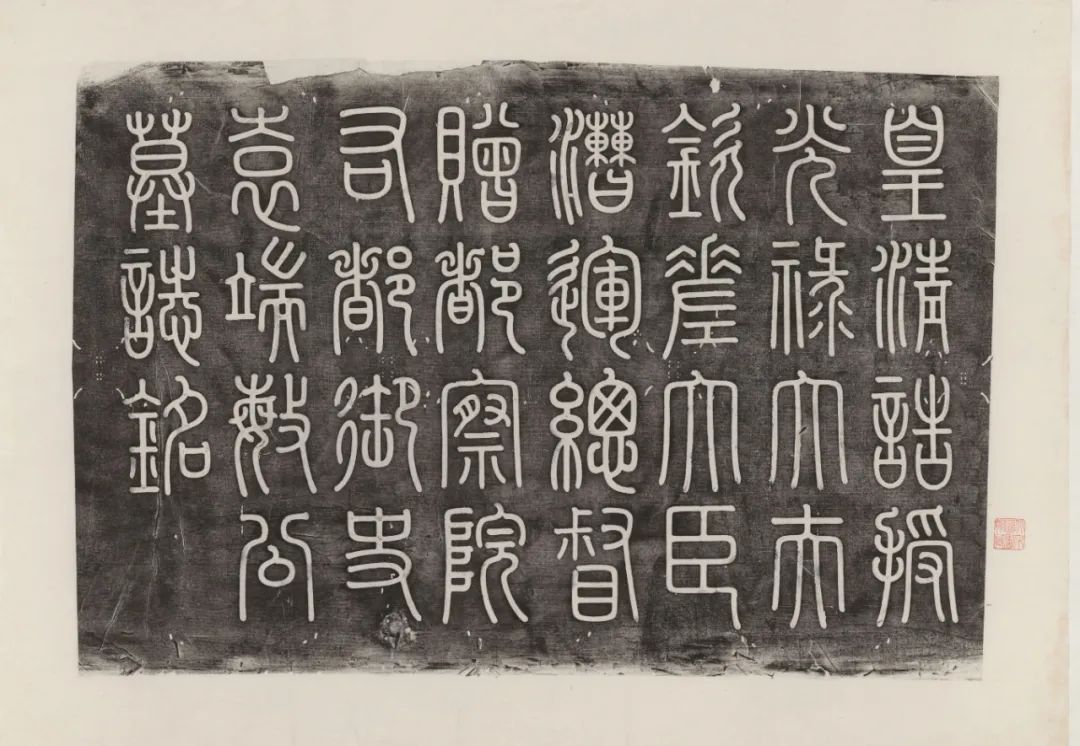 皇清誥授
光祿大夫
欽差大臣
漕運總督
贈都察院
右都御史
袁端敏公
墓誌銘